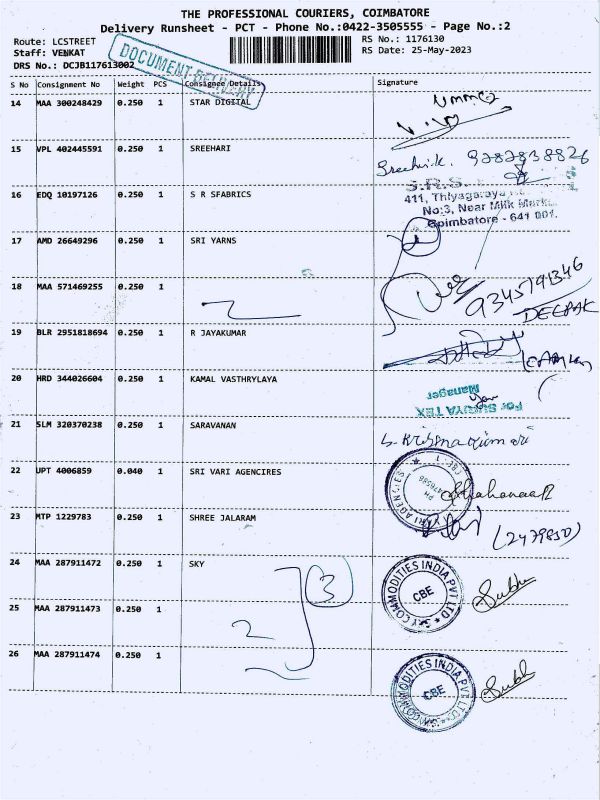 THE PROFESSIONAL COURIERS, COIMBATORE
Delivery Runsheet - PCT - Phone No.:0422-3505555 - Page No.:2
Route: LCSTREET
RS No.: 1176130
Staff: VENKAT
RS Date: 25-May-2023
DRS No.: DCJB117613002
DOCUMENT DELIVERY
S No Consignment No Weight PCS Consignee Details Signature
14 MAA 300248429 0.250 1 STAR DIGITAL
15 VPL 402445591 0.250 1 SREEHARI
9282838826
16 EDQ 10197126 0.250 1 S R SFABRICS
S.R.S.
411, Thiyagaraya
No:3, Near Milk
Coimbatore - 641 001.
17 AMD 26649296 0.250 1 SRI YARNS
18 MAA 571469255 0.250 1
2
9345791346
DEEPAK
19 BLR 2951818694 0.250 1 R JAYAKUMAR
20 HRD 344026604 0.250 1 KAMAL VASTHRYLAYA
For SURIYA TEX
Manager
21 SLM 320370238 0.250 1 SARAVANAN
22 UPT 4006859 0.040 1 SRI VARI AGENCIRES
23 MTP 1229783 0.250 1 SHREE JALARAM
(2479850)
24 MAA 287911472 0.250 1 SKY
3
SKY COMMODITIES INDIA PVT LTD
CBE
Subh
25 MAA 287911473 0.250 1
2
26 MAA 287911474 0.250 1
SKY COMMODITIES INDIA PVT LTD
CBE
Subh